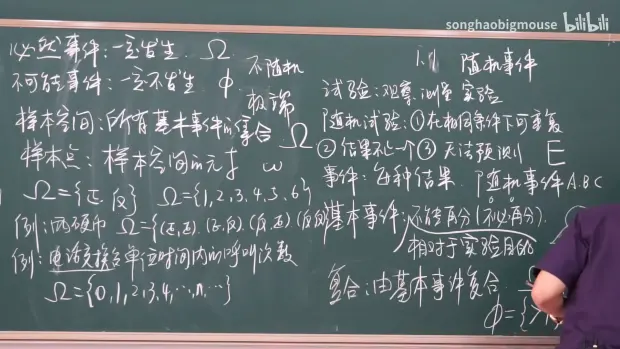 songhaobigmouse bilibili
必然事件：一定发生 Ω
不可能事件：一定不发生 Φ
不随机
极端
样本空间：所有基本事件的集合 Ω
样本点：样本空间的元素 ω
Ω={正,反} Ω={1,2,3,4,5,6}
例：两硬币 Ω={(正,正),(正,反),(反,正),(反,反)}
例：电话交换台单位时间内的呼叫次数
Ω={0,1,2,3,4,…,n,…}
1.1 随机事件
试验：观察、测量、实验
随机试验：①在相同条件下可重复
②结果不止一个③无法预测 E
事件：每种结果 随机事件A.B.C
基本事件：不能再分(不必再分).
相对于实验目的
复合：由基本事件复合
Φ={